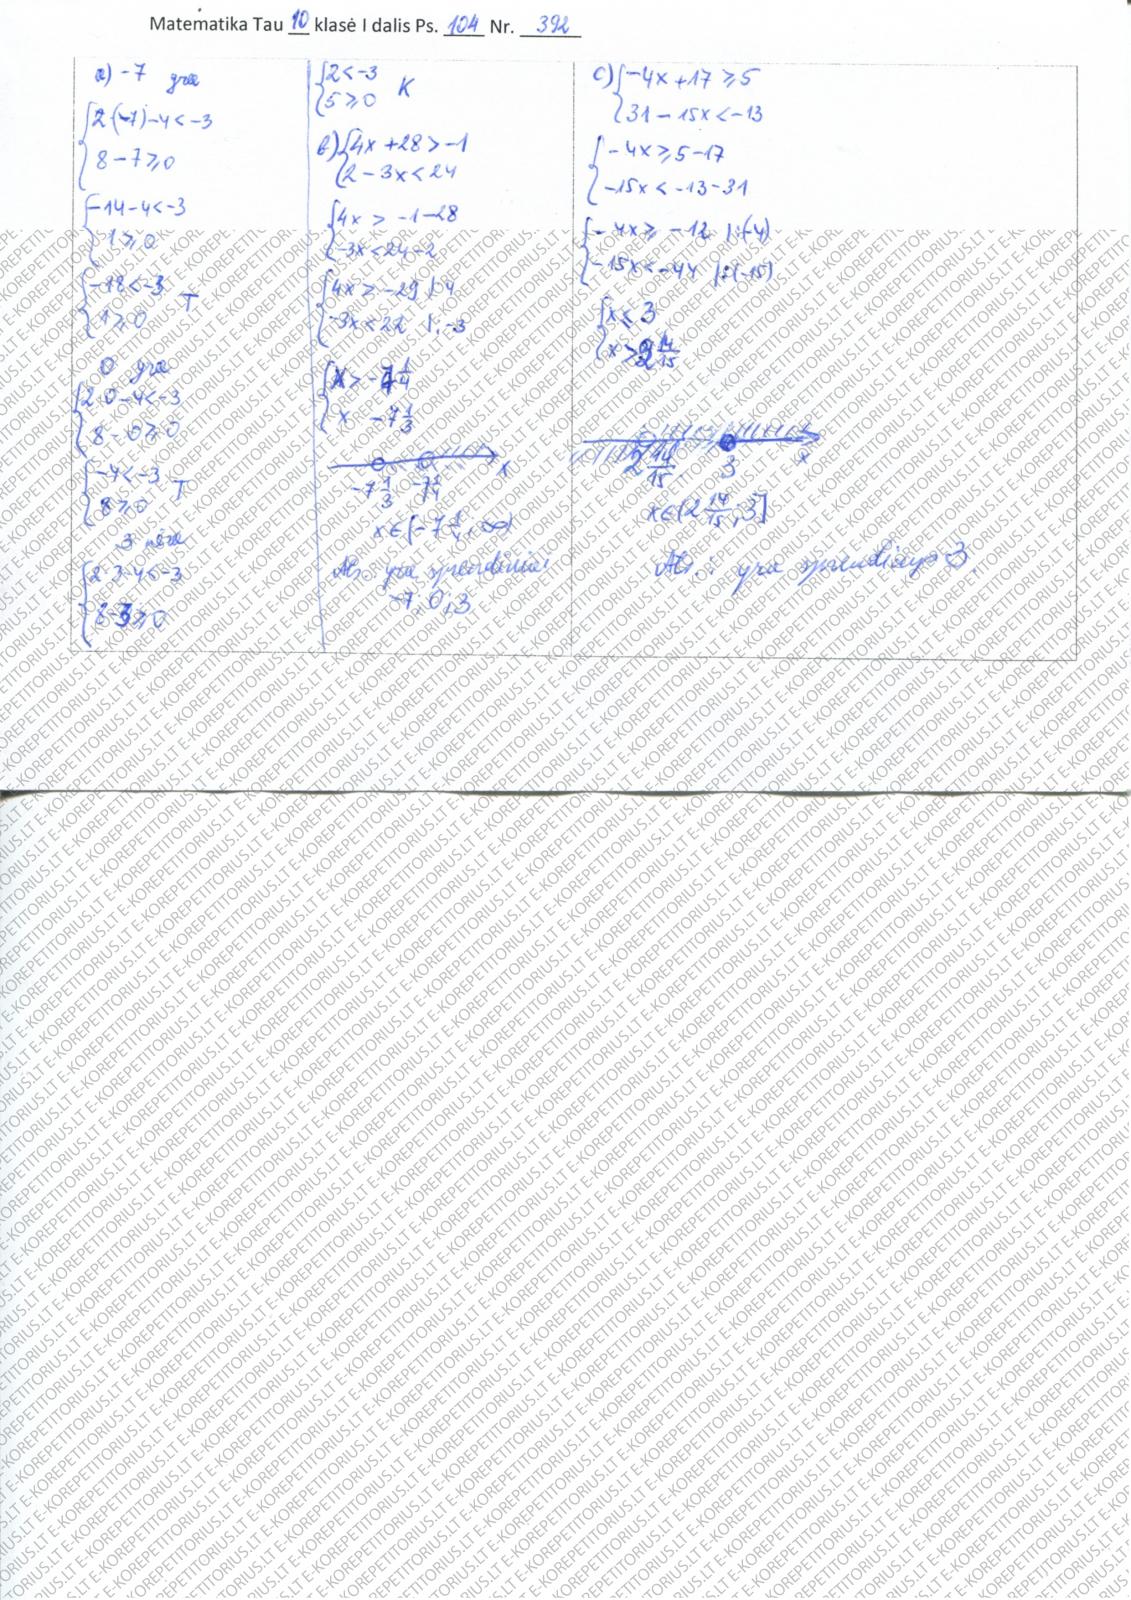 Matematika Tau 10 klasė I dalis Ps. 104 Nr. 392
a) -7 yra
2·(-7)-4<-3
8-7≥0
-14-4<-3
1≥0
-18<-3 T
1≥0
0 yra
2·0-4<-3
8-0≥0
-4<-3 T
8≥0
3 nėra
2·3-4<-3
8-3≥0
2<-3
5≥0 K
b) 4x+28>-1
2-3x<24
4x>-1-28
-3x<24-2
4x>-29 |:4
-3x<22 |:-3
x>-7 1/4
x -7 1/3
-7 1/3 -7 1/4 x
x∈(-7 1/4; ∞)
Ats.: yra sprendiniai
-7, 0; 3
c) -4x+17≥5
31-15x<-13
-4x≥5-17
-15x<-13-31
-4x≥-12 |:(-4)
-15x<-44 |:(-15)
x≤3
x>2 14/15
2 14/15 3 x
x∈(2 14/15; 3]
Ats.: yra sprendinys 3.
E-KOREPETITORIUS.LT